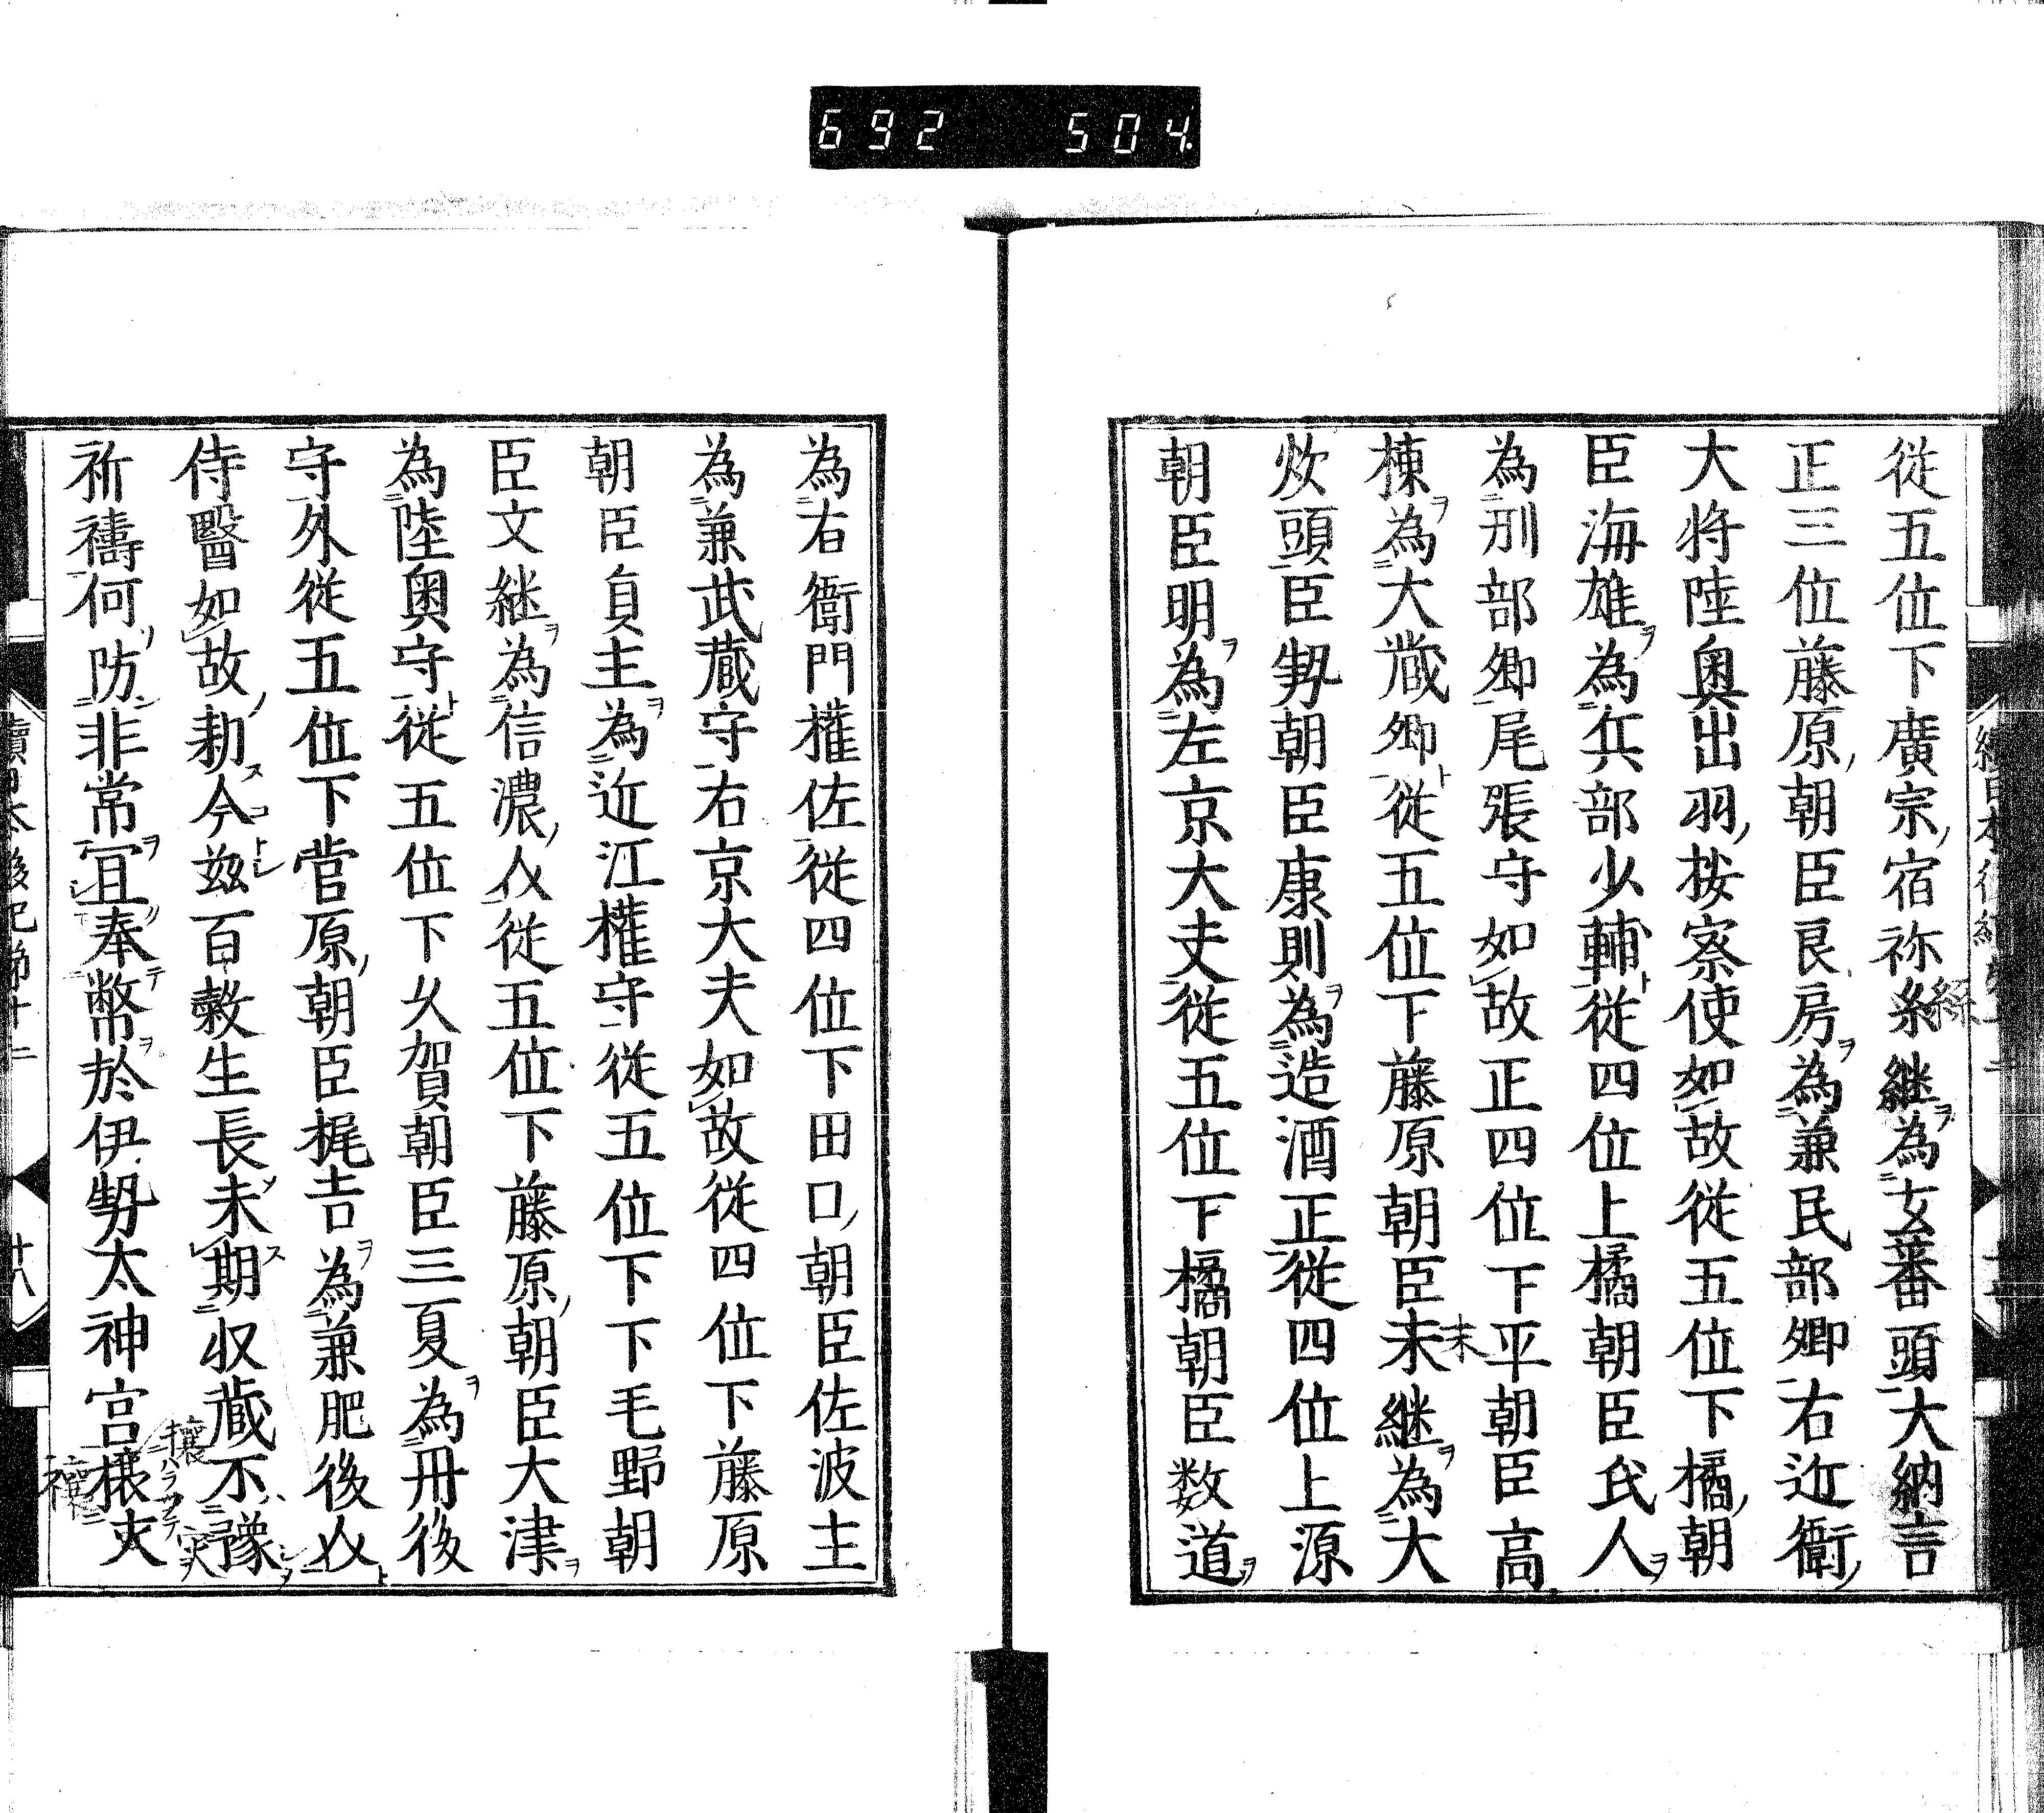 692 504
従五位下廣宗宿祢糸継為玄蕃頭大納言
正三位藤原朝臣良房為兼民部卿右近衛
大将陸奥出羽按察使如故従五位下橘朝
臣海雄為兵部少輔従四位上橘朝臣氏人
為刑部卿尾張守如故正四位下平朝臣高
棟為大蔵卿従五位下藤原朝臣未継為大
炊頭臣勢朝臣康則為造酒正従四位上源
朝臣明為左京大夫従五位下橘朝臣数道
為右衛門権佐従四位下田口朝臣佐波主
為兼武蔵守右京大夫如故従四位下藤原
朝臣貞主為近江権守従五位下下毛野朝
臣文継為信濃介従五位下藤原朝臣大津
為陸奥守従五位下久賀朝臣三夏為丹後
守外従五位下菅原朝臣梶吉為兼肥後介
侍醫如故勅今茲百穀生長未期収蔵不豫
祈禱何防非常宜奉幣於伊勢太神宮攘灾
續日本後紀第十二 十八